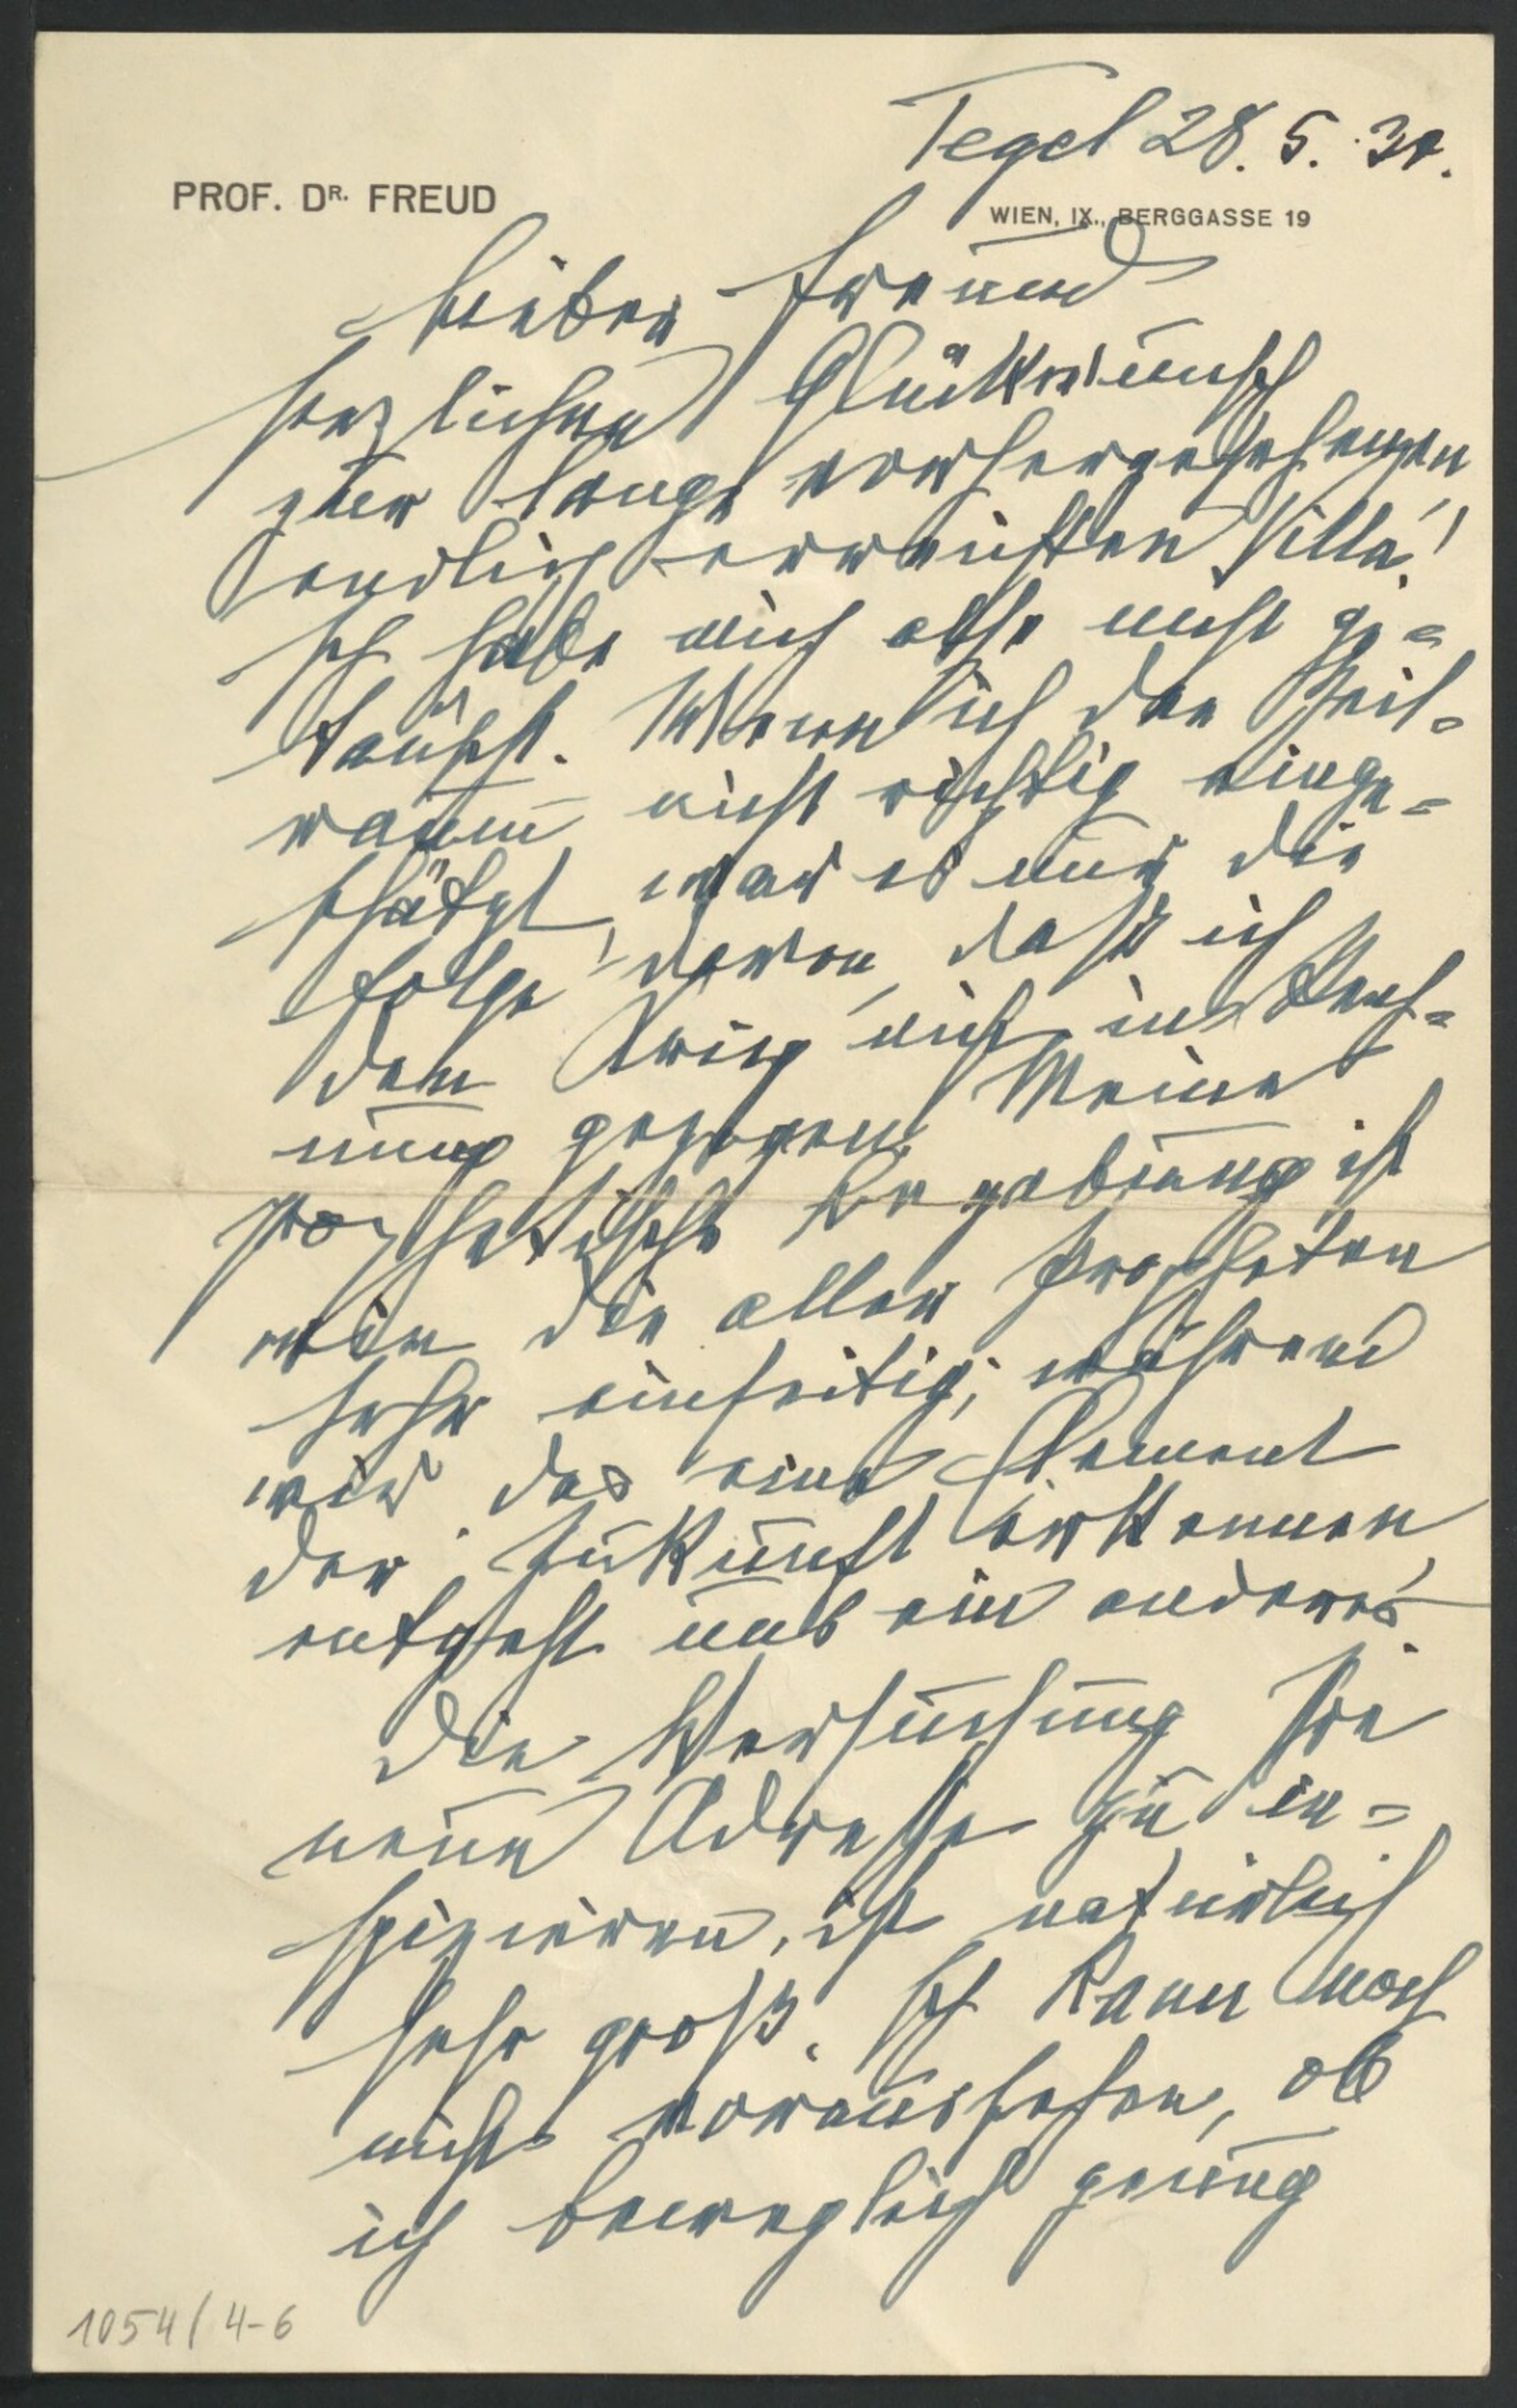 Tegel 28. 5. 30.
PROF. DR. FREUD
WIEN, IX., BERGGASSE 19
Lieber Freund
Herzlichen Glückwunsch
zur lange vorhergesehenen,
endlich erreichten Villa!
Ich habe mich also nicht ge=
täuscht. Wenn ich den Zeit=
raum nicht richtig einge=
schätzt, war es nur die
Folge davon, daß ich
den Krieg nicht in Rech=
nung gezogen. Meine
prophetische Begabung ist
wie die aller Propheten
sehr einseitig; während
wir das eine Element
der Zukunft erkennen,
entgeht uns ein anderes.
Die Versuchung Ihre
neue Adresse zu in=
spizieren, ist natürlich
sehr groß. Ich kann noch
nicht voraussehen, ob
ich beweglich genug
1054/4-6